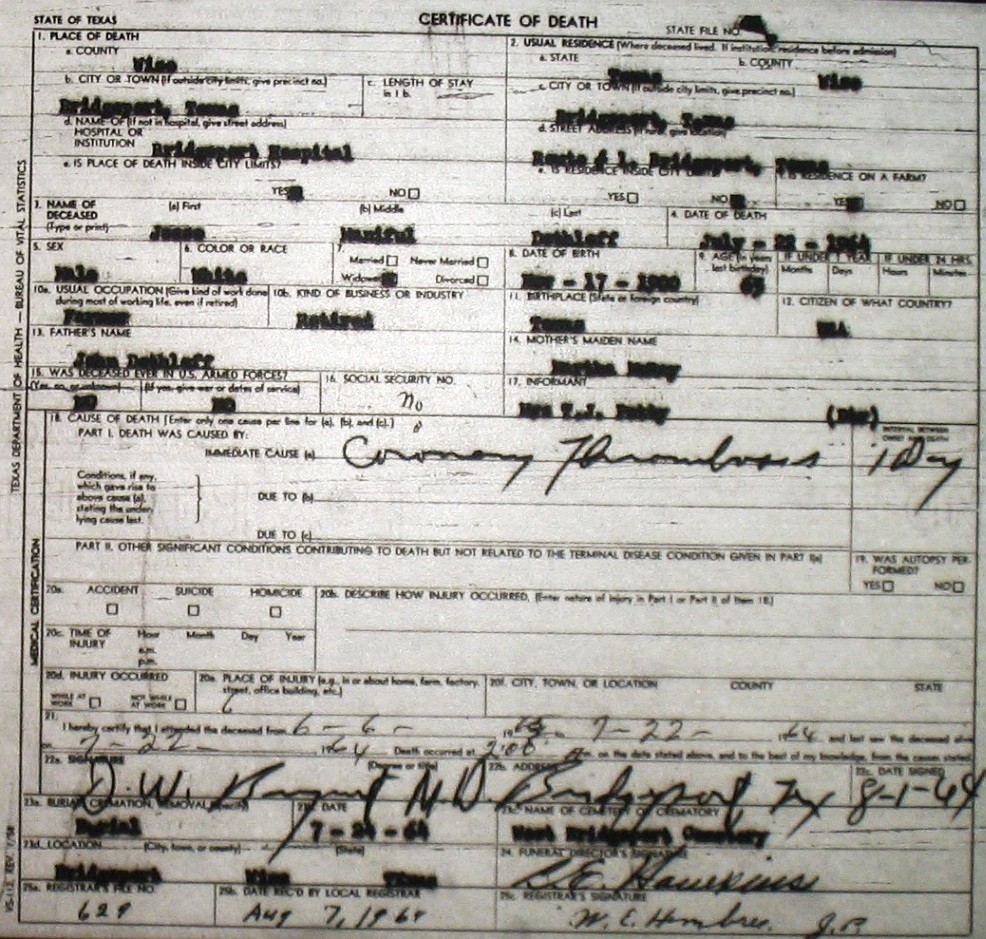 STATE OF TEXAS
CERTIFICATE OF DEATH
STATE FILE NO.
1. PLACE OF DEATH
a. COUNTY
Wise
2. USUAL RESIDENCE (Where deceased lived. If institution: residence before admission)
a. STATE
Texas
b. COUNTY
Wise
b. CITY OR TOWN (If outside city limits, give precinct no.)
Bridgeport, Texas
c. LENGTH OF STAY
in 1 b.
c. CITY OR TOWN (If outside city limits, give precinct no.)
Bridgeport, Texas
d. NAME OF (If not in hospital, give street address)
HOSPITAL OR
INSTITUTION
Bridgeport Hospital
d. STREET ADDRESS (If rural, give location)
Route # 1, Bridgeport, Texas
e. IS PLACE OF DEATH INSIDE CITY LIMITS?
YES NO
e. IS RESIDENCE INSIDE CITY LIMITS?
YES NO
f. IS RESIDENCE ON A FARM?
YES NO
3. NAME OF
DECEASED
(Type or print)
(a) First
Jesse
(b) Middle
(c) Last
Dethloff
4. DATE OF DEATH
July - 22 - 1964
5. SEX
Male
6. COLOR OR RACE
White
7.
Married Never Married
Widowed Divorced
8. DATE OF BIRTH
- 17 - 1900
9. AGE (In years
last birthday)
IF UNDER 1 YEAR
Months Days
IF UNDER 24 HRS.
Hours Minutes
10a. USUAL OCCUPATION (Give kind of work done
during most of working life, even if retired)
Farmer
10b. KIND OF BUSINESS OR INDUSTRY
Retired
11. BIRTHPLACE (State or foreign country)
Texas
12. CITIZEN OF WHAT COUNTRY?
USA
13. FATHER'S NAME
John Dethloff
14. MOTHER'S MAIDEN NAME
15. WAS DECEASED EVER IN U.S. ARMED FORCES?
(Yes, no, or unknown) (If yes, give war or dates of service)
NO NO
16. SOCIAL SECURITY NO.
no
17. INFORMANT
18. CAUSE OF DEATH [Enter only one cause per line for (a), (b), and (c).]
PART I. DEATH WAS CAUSED BY:
IMMEDIATE CAUSE (a) Coronary Thrombosis
INTERVAL BETWEEN
ONSET AND DEATH
1 Day
Conditions, if any,
which gave rise to
above cause (a),
stating the under
lying cause last.
DUE TO (b)
DUE TO (c)
PART II. OTHER SIGNIFICANT CONDITIONS CONTRIBUTING TO DEATH BUT NOT RELATED TO THE TERMINAL DISEASE CONDITION GIVEN IN PART I(a)
19. WAS AUTOPSY PER-
FORMED?
YES NO
20a. ACCIDENT SUICIDE HOMICIDE
20b. DESCRIBE HOW INJURY OCCURRED. (Enter nature of injury in Part I or Part II of Item 18.)
20c. TIME OF
INJURY
Hour Month Day Year
a.m.
p.m.
20d. INJURY OCCURRED
WHILE AT
WORK
NOT WHILE
AT WORK
20e. PLACE OF INJURY (e.g., in or about home, farm, factory,
street, office building, etc.)
20f. CITY, TOWN, OR LOCATION COUNTY STATE
21.
I hereby certify that I attended the deceased from 6 - 6 - 19 7-22- 1964 and last saw the deceased alive
on 7-22- 1964 Death occurred at 2:00 m. on the date stated above, and to the best of my knowledge, from the causes stated.
22a. SIGNATURE (Degree or title)
D.W. Bryant M.D.
22b. ADDRESS
Bridgeport Tex
22c. DATE SIGNED
8-1-64
23a. BURIAL, CREMATION, REMOVAL (Specify)
Burial
23b. DATE
7 - 24 - 64
23c. NAME OF CEMETERY OR CREMATORY
West Bridgeport Cemetery
23d. LOCATION (City, town, or county) (State)
Bridgeport Wise Texas
24. FUNERAL DIRECTOR'S SIGNATURE
Hawkins
25a. REGISTRAR'S FILE NO.
629
25b. DATE REC'D BY LOCAL REGISTRAR
Aug 7, 1964
25c. REGISTRAR'S SIGNATURE
W. E. Hembree J.P.
TEXAS DEPARTMENT OF HEALTH — BUREAU OF VITAL STATISTICS
MEDICAL CERTIFICATION
VS-112 REV. 7/58